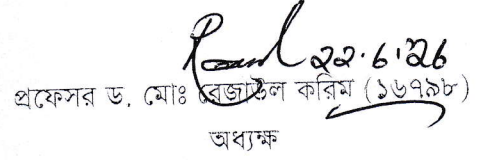 ২২.৬.'২৬
প্রফেসর ড. মোঃ রেজাউল করিম (১৬৭৯৮)
অধ্যক্ষ